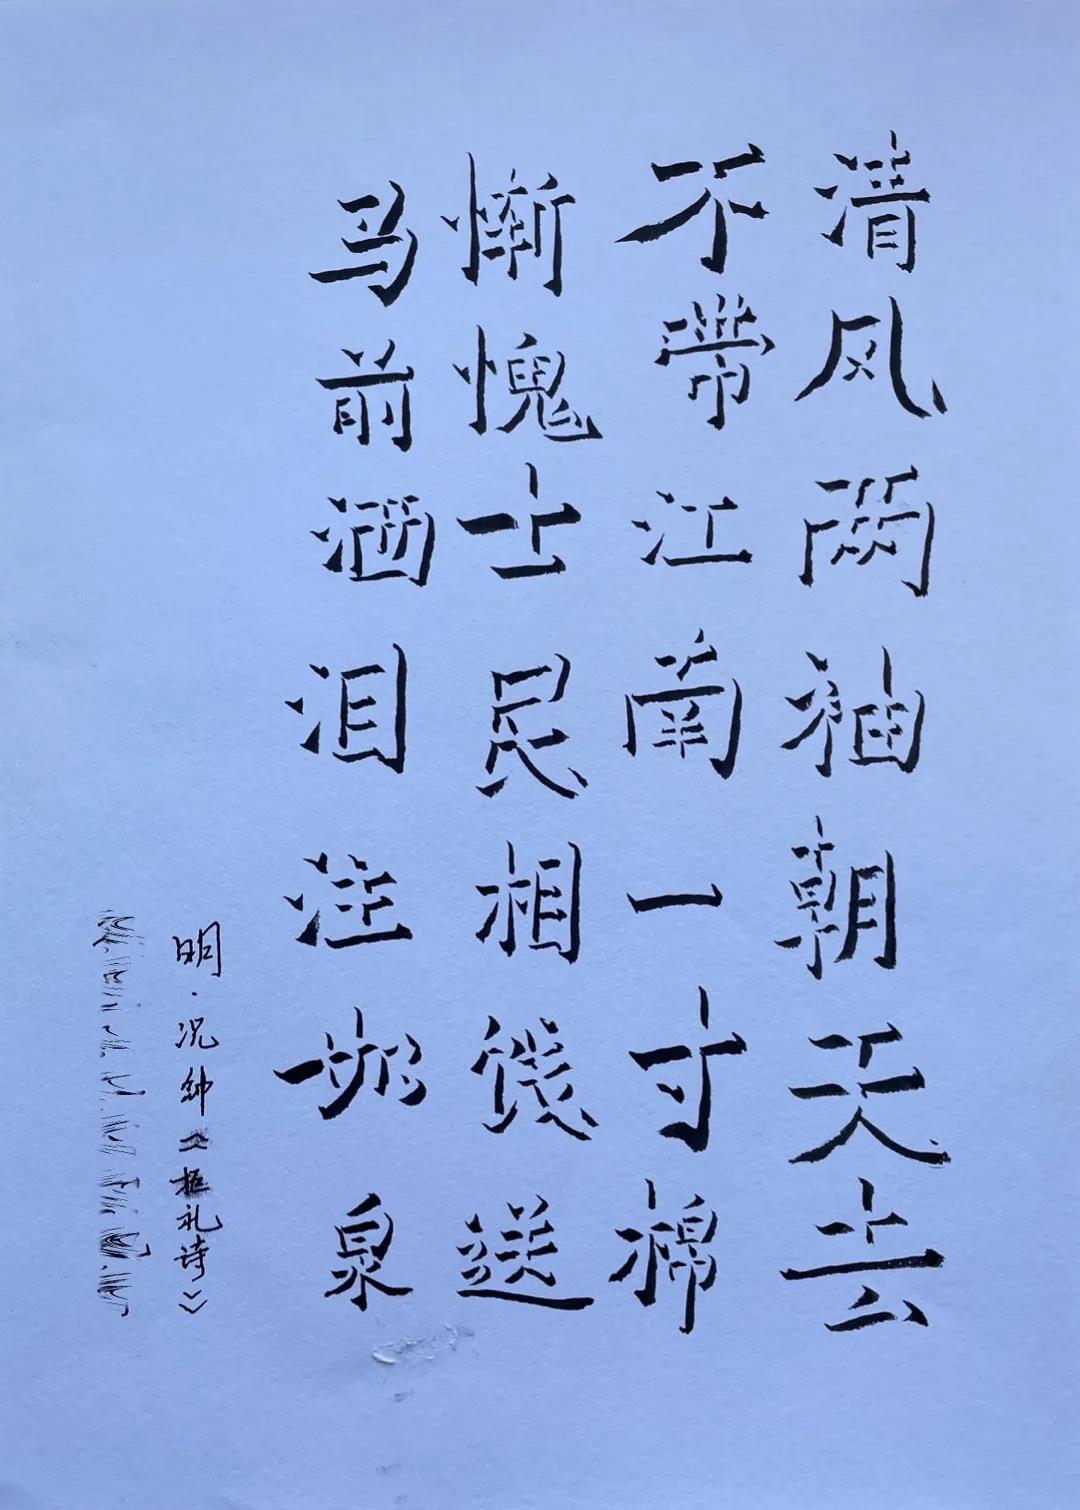 清风两袖朝天去
不带江南一寸棉
惭愧士民相饯送
马前洒泪注如泉
明·况钟《拒礼诗》